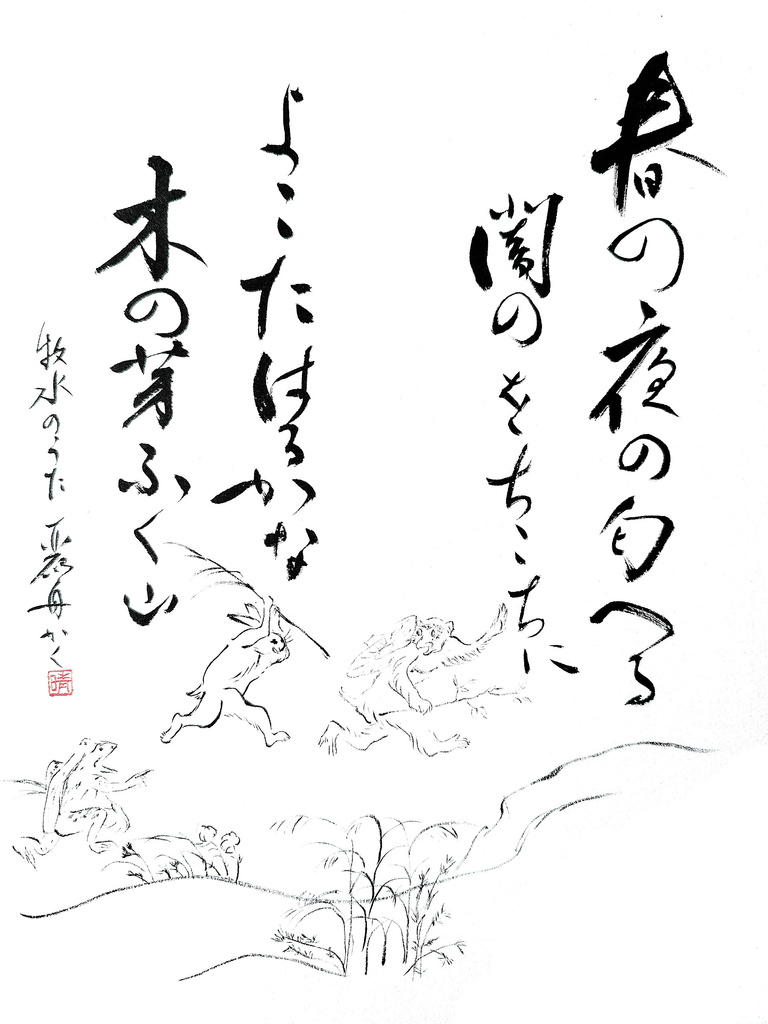 春の夜の匂へる
闇のをちこちに
よこたはるかな
木の芽ふく山
牧水のうた 麗舟かく
晴